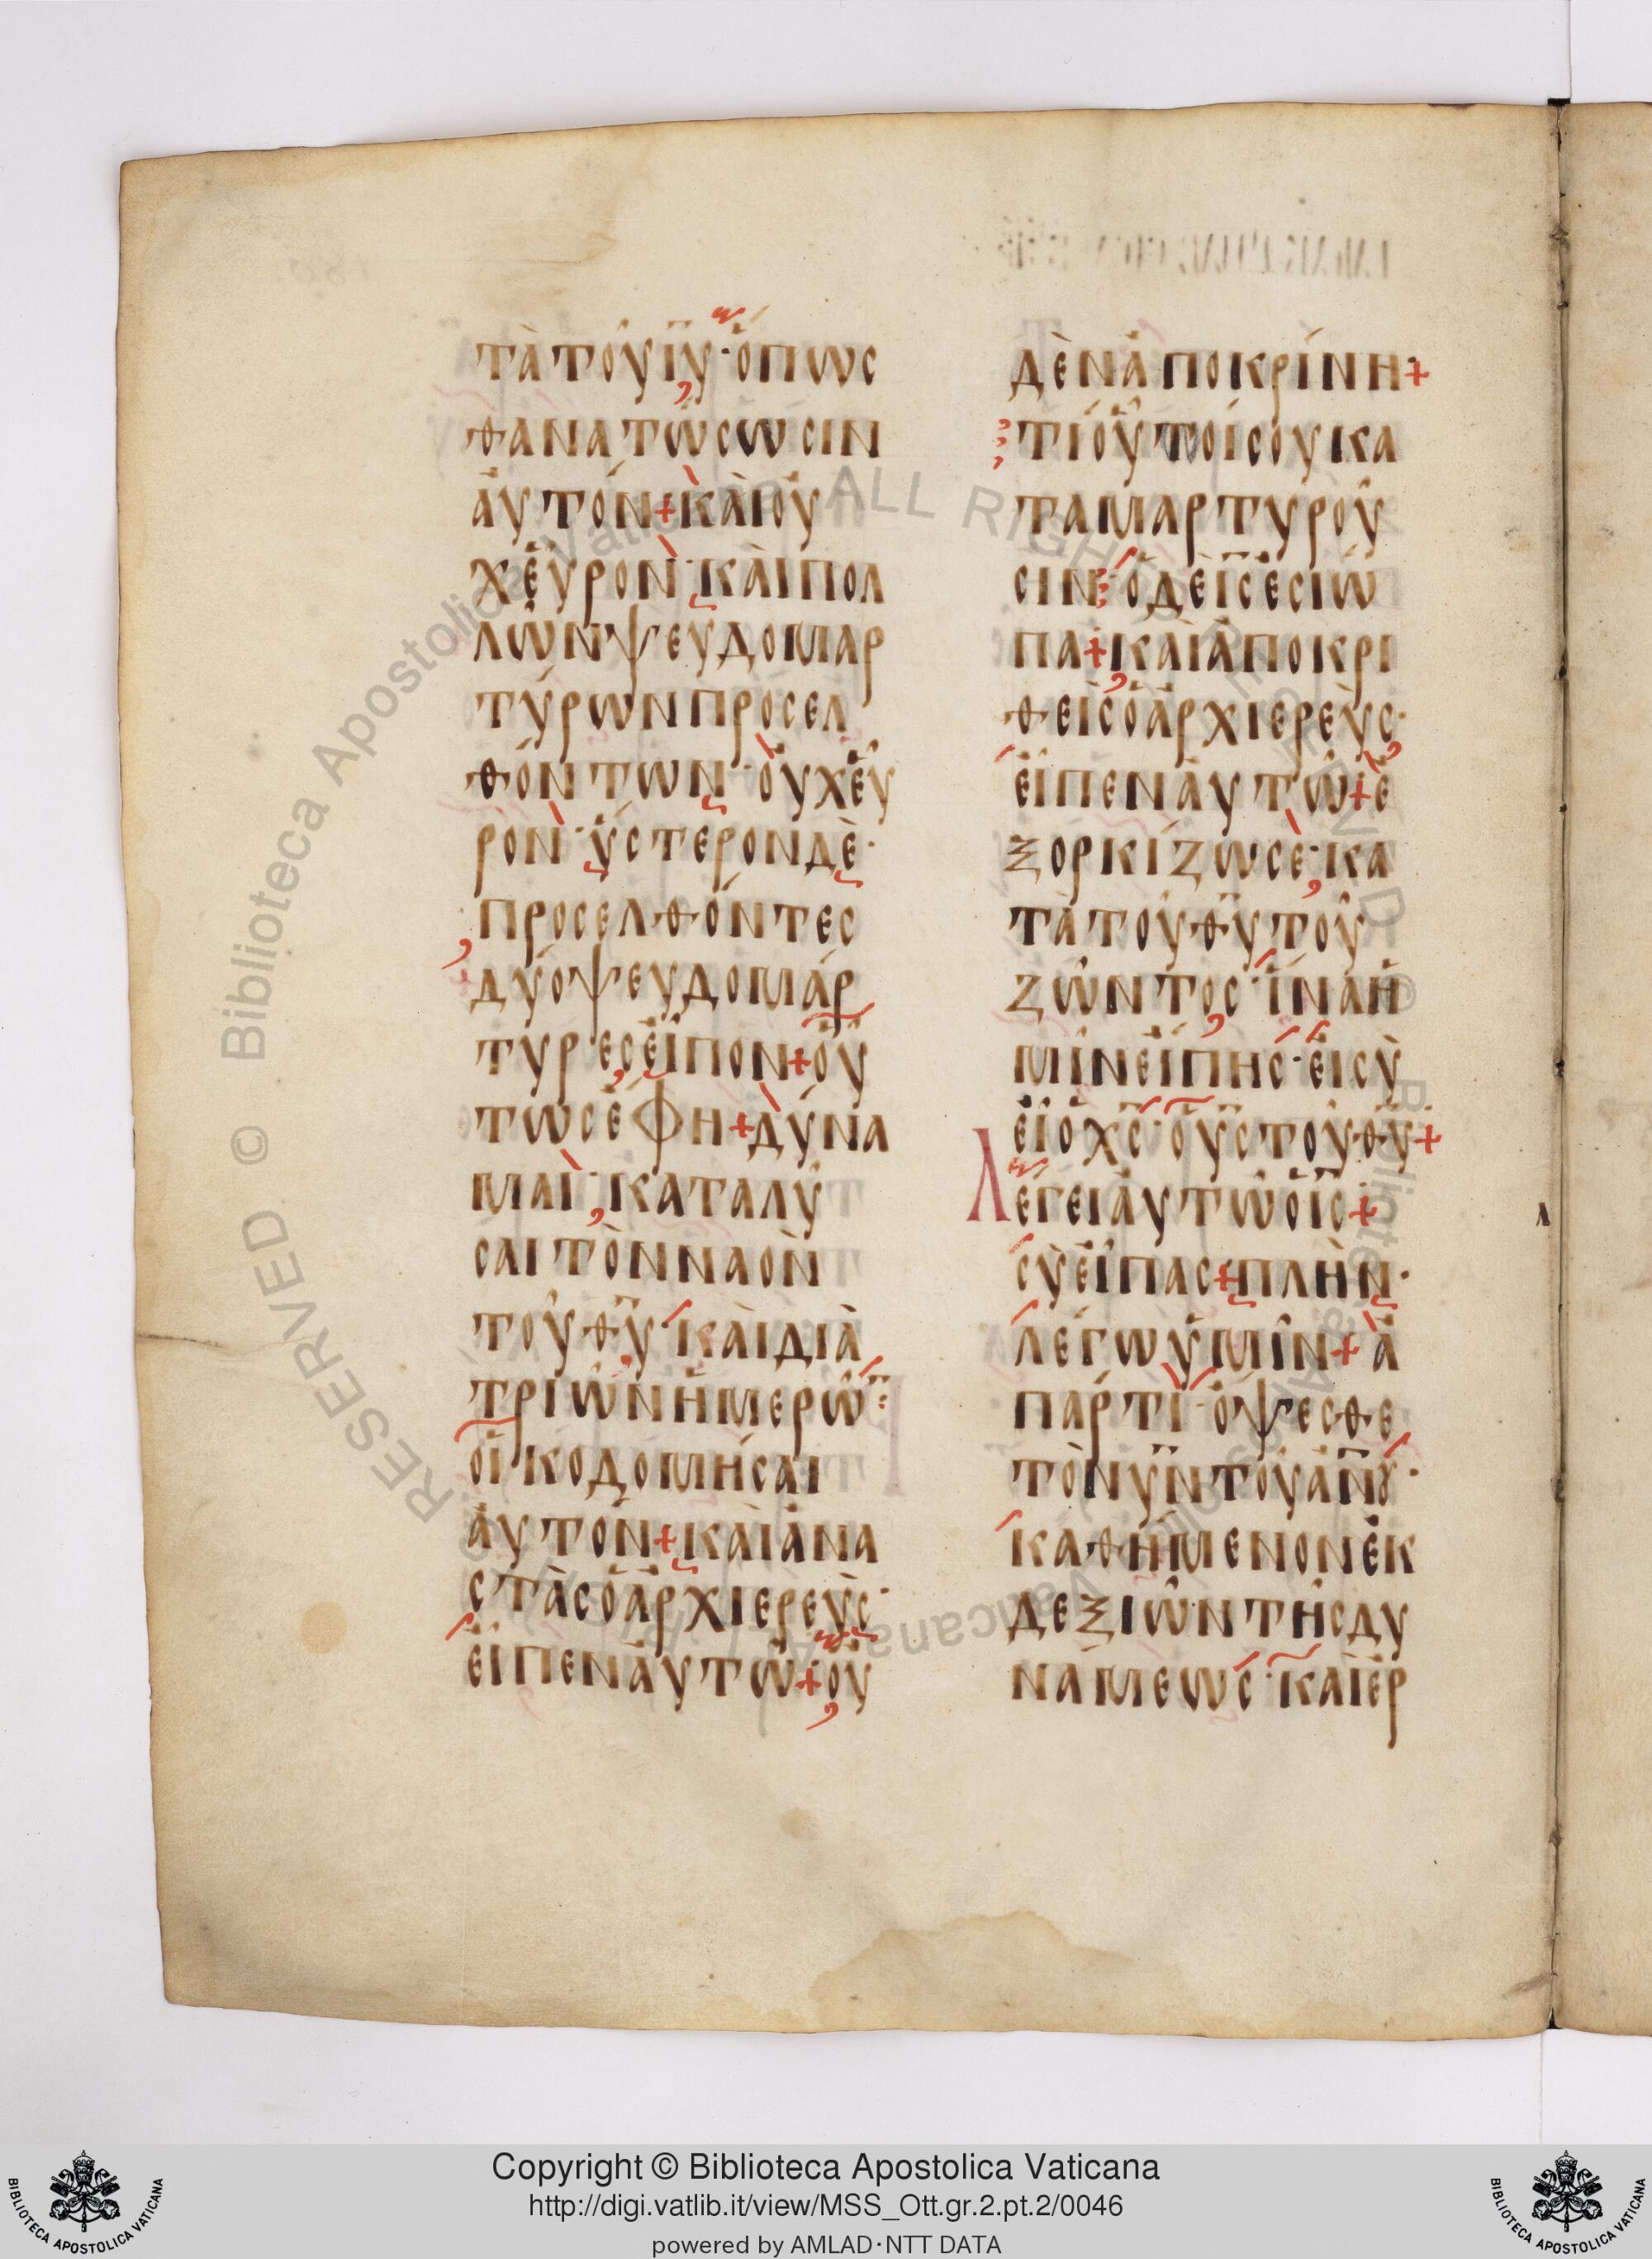 τὰ τοῦ ιυ· ὅπως
θανατώσωσιν
ἀυτόν + κὰι οὐ
χ ἑῦρον· κὰι πολ
λῶν ψευδομαρ
τύρων προσελ
θόντων· ὀυχ ἑῦ
ρον· ὕστερον δὲ·
προσελθόντες
δύο ψευδομάρ
τυρες εἶπον + οὗ
τως ἔφη + δύνα
μαι· καταλῦ
σαι τὸν ναὸν
τοῦ θυ· κὰι διὰ
τριῶν ἡμερῶ
οἰκοδομῆσαι
ἀυτόν + κὰι ἀνα
στὰς ὁ ἀρχιερεὺς·
εἶπεν ἀυτῶ + οὐ
δὲν ἀποκρίνη +
τί οὗτοί σου κα
ταμαρτυροῦ
σιν· ὁ δὲ ις ἐσιώ
πα + κὰι ἀποκρι
θεὶς ὁ ἀρχιερεὺς·
εἶπεν ἀυτῶ + ἐ
ξορκίζω σὲ· κα
τὰ τοῦ θυ τοῦ
ζῶντος· ἵνα ἡ
μῖν εἴπης· εἰ σὺ
εἶ ὁ χς· ὁ υς τοῦ θυ +
Λέγει ἀυτῶ ὁ ις +
σὺ εἶπας + πλὴν·
λέγω ὑμῖν + ἀ
πάρτι· ὄψεσθε
τὸν υν τοῦ ανου·
καθήμενον ἐκ
δεξιῶν τῆς δυ
νάμεως· κὰι ἐρ
Copyright © Biblioteca Apostolica Vaticana
http://digi.vatlib.it/view/MSS_Ott.gr.2.pt.2/0046
powered by AMLAD·NTT DATA
BIBLIOTECA APOSTOLICA VATICANA
BIBLIOTECA APOSTOLICA VATICANA